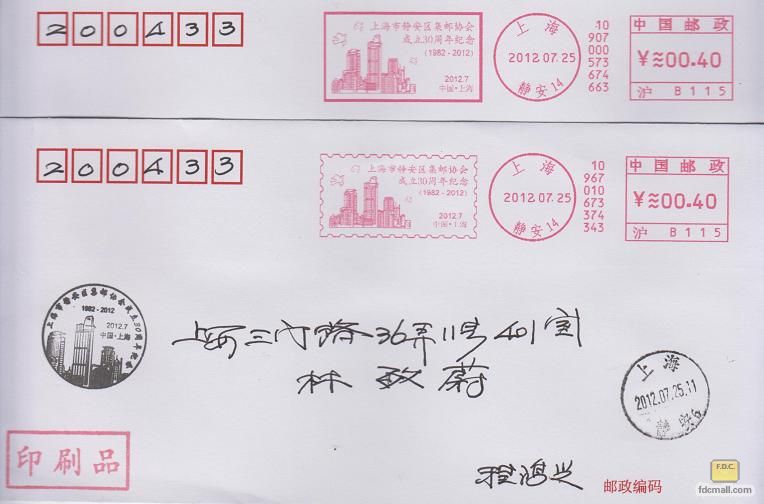 200433
上海市静安区集邮协会
成立30周年纪念
(1982-2012)
2012.7
中国·上海
上海
2012.07.25
静安14
10
907
000
573
674
663
中国邮政
¥≈00.40
沪 B115
200433
上海市静安区集邮协会
成立30周年纪念
(1982-2012)
2012.7
中国·上海
上海
2012.07.25
静安14
10
967
010
673
374
343
中国邮政
¥≈00.40
沪 B115
上海市静安区集邮协会成立30周年纪念
1982-2012
2012.7
中国·上海
上海三门路36弄11号401室
林政蔚
上海
2012.07.25.11
静安
印刷品
程鸿兴
邮政编码
F.D.C.
fdcmall.com